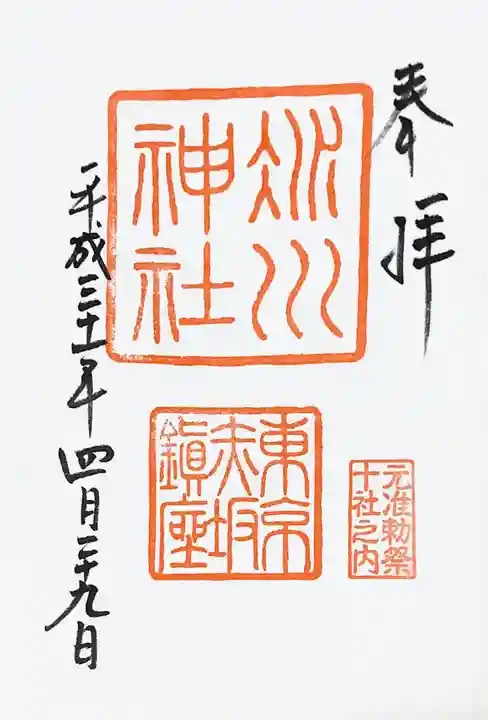 奉拝
氷川
神社
東京
赤坂
鎮座
元准勅祭
十社之内
平成三十一年四月二十九日